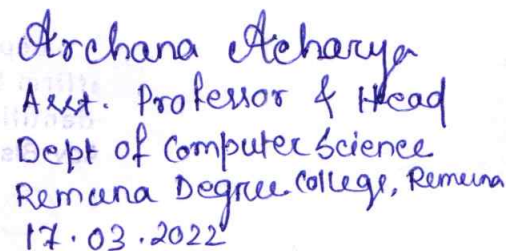 Archana Acharya
Asst. Professor & Head
Dept of Computer Science
Remuna Degree College, Remuna
17.03.2022